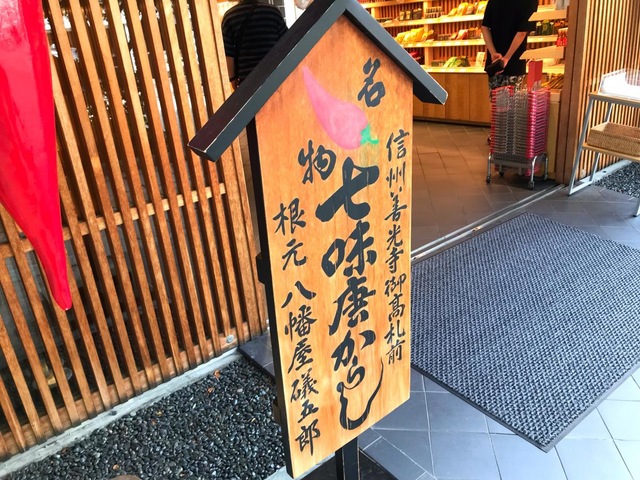 名物
信州・善光寺御高札前
七味唐からし
根元 八幡屋礒五郎